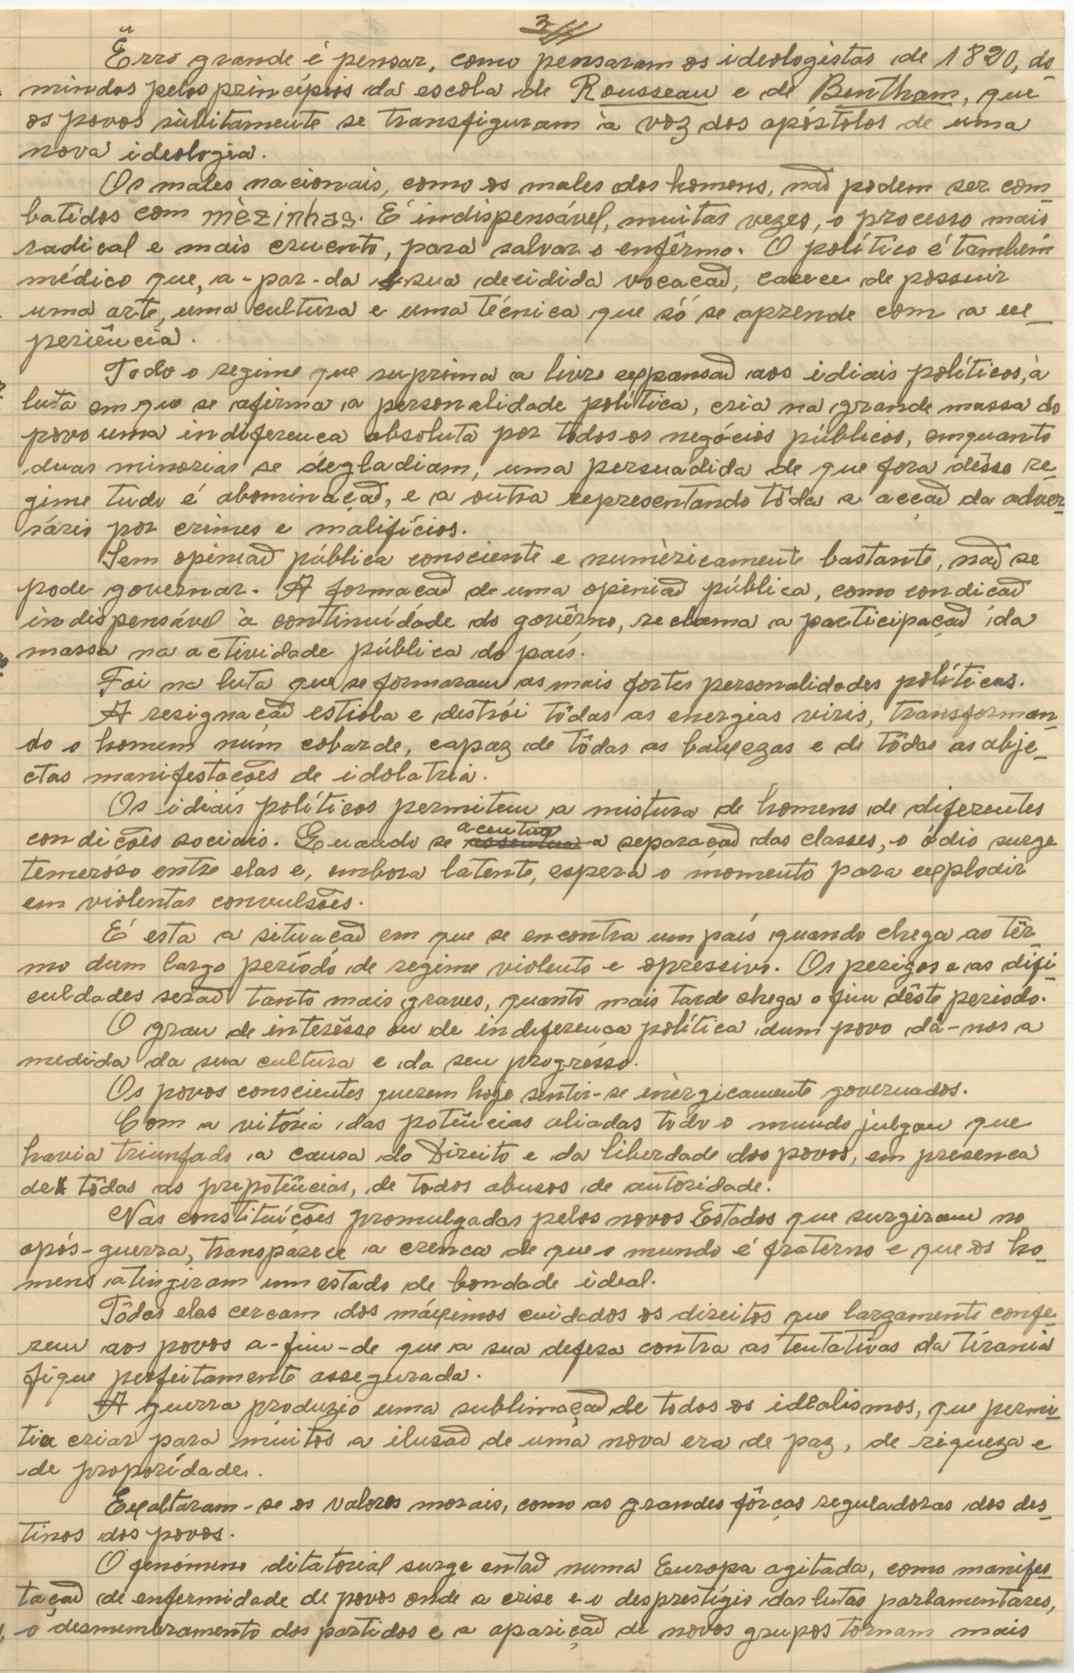 3
Êrro grande é pensar, como pensaram os ideologistas de 1820, do-
minados pelos princípios da escola de Rousseau e de Bentham, que
os povos sùbitamente se transfiguram à voz dos apóstolos de uma
nova ideologia.
Os males nacionais, como os males dos homens, não podem ser com-
batidos com mèzinhas. É indispensável, muitas vezes, o processo mais
radical e mais cruento, para salvar o enfêrmo. O político é também
médico que, a-par-da sua decidida vocação, carece de possuir
uma arte, uma cultura e uma técnica que só se aprende com a ex-
periência.
Todo o regime que suprima a livre expansão aos idiais políticos, à
luta em que se afirma a personalidade política, cria na grande massa do
povo uma indiferença absoluta por todos os negócios públicos, emquanto
duas minorias se degladiam, uma persuadida de que fora dêsse re-
gime tudo é abominação, e a outra representando tôda a acção da adver-
sário por crimes e malifícios.
Sem opinião pública consciente e numèricamente bastante, não se
pode governar. A formação de uma opinião pública, como condição
indispensável à continuídade do govêrno, reclama a participação da
massa na actividade pública do país.
Foi na luta que se formaram as mais fortes personalidades políticas.
A resignação estiola e destrói tôdas as energias viris, transforman-
do o homem num cobarde, capaz de tôdas as baixezas e de tôdas as abje-
ctas manifestações de idolatria.
Os idiais políticos permitem a mistura de homens de diferentes
condições sociais. Quando se acentua a separação das classes, o ódio surge
temeroso entre elas e, embora latente, espera o momento para explodir
em violentas convulsões.
É esta a situação em que se encontra um país quando chega ao têr-
mo dum largo período de regime violento e opressivo. Os perigos e as difi-
culdades serão tanto mais graves, quanto mais tarde chega o fim dêste periodo.
O grau de interêsse ou de indiferença política dum povo dá-nos a
medida da sua cultura e do seu progrésso.
Os povos conscientes querem hoje sentir-se enèrgicamente governados.
Com a vitória das potências aliadas todo o mundo julgou que
havia triunfado a causa do Direito e da liberdade dos povos, em presença
de tôdas as prepotências, de todos abusos de autoridade.
Nas constituíções promulgadas pelos novos Estados que surgiram no
após-guerra, transparece a crença de que o mundo é fraterno e que os ho-
mens atingiram um estado de bondade ideal.
Tôdas elas cercam dos máximos cuidados os direitos que largamente confe-
rem aos povos a-fim-de que a sua defesa contra as tentativas da tirania
fique perfeitamente assegurada.
A guerra produziu uma sublimação de todos os idealismos, que permi-
tia criar para muitos a ilusão de uma nova era de paz, de riqueza e
de proporidade.
Exaltaram-se os valores morais, como as grandes fôrças reguladoras dos des-
tinos dos povos.
O fenómeno ditatorial surge então numa Europa agitada, como manifes-
tação de enfermidade de povos onde a crise e o desprestígio das lutas parlamentares,
o desmembramento dos partidos e a aparição de novos grupos tornam mais